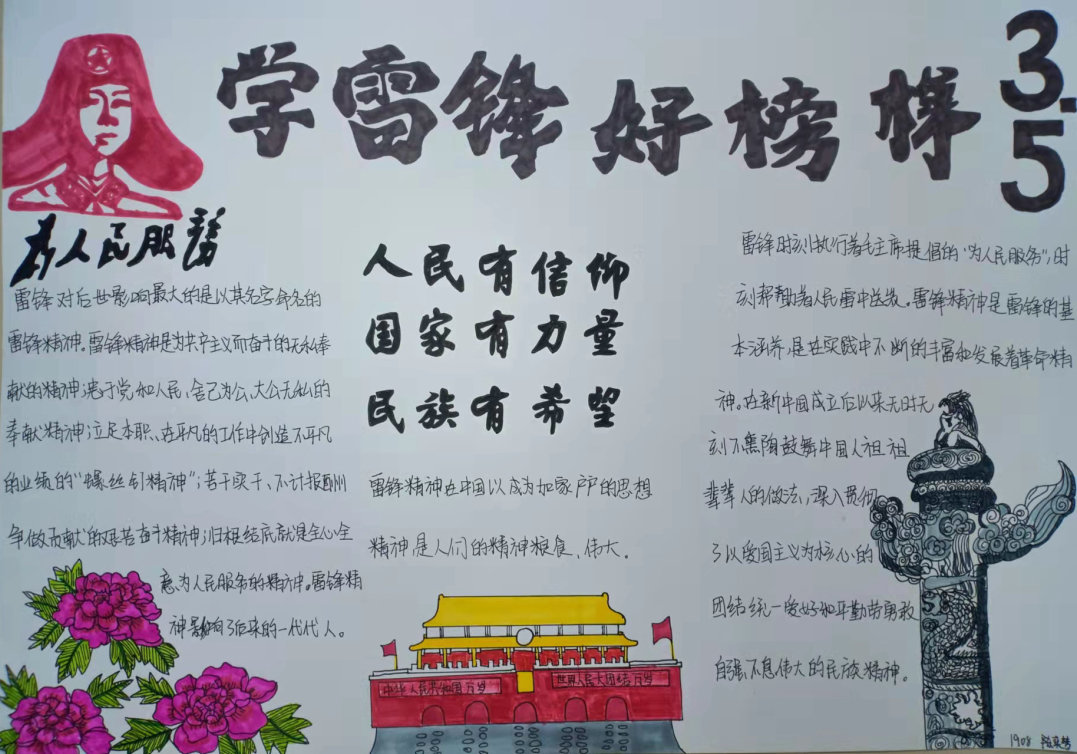 学雷锋好榜样
3.5
为人民服务
雷锋对后世影响最大的是以其名字命名的
雷锋精神。雷锋精神是为共产主义而奋斗的无私奉
献的精神;忠于党和人民,舍己为公、大公无私的
奉献精神;立足本职、在平凡的工作中创造不平凡
的业绩的“螺丝钉精神”;苦干实干、不计报酬
争做贡献的艰苦奋斗精神;归根结底就是全心全
意为人民服务的精神。雷锋精
神影响了后来的一代代人。
人民有信仰
国家有力量
民族有希望
雷锋精神在中国以成为如家户户的思想
精神是人们的精神粮食,伟大。
中华人民共和国万岁
世界人民大团结万岁
雷锋时刻执行着毛主席提倡的“为人民服务”,时
刻帮助着人民雪中送炭。雷锋精神是雷锋的基
本涵养,是在实践中不断的丰富和发展着革命精
神。在新中国成立后以来无时无
刻不熏陶鼓舞中国人祖祖
辈辈人的做法,深入贯彻
了以爱国主义为核心的
团结统一爱好和平勤劳勇敢
自强不息伟大的民族精神。
1908